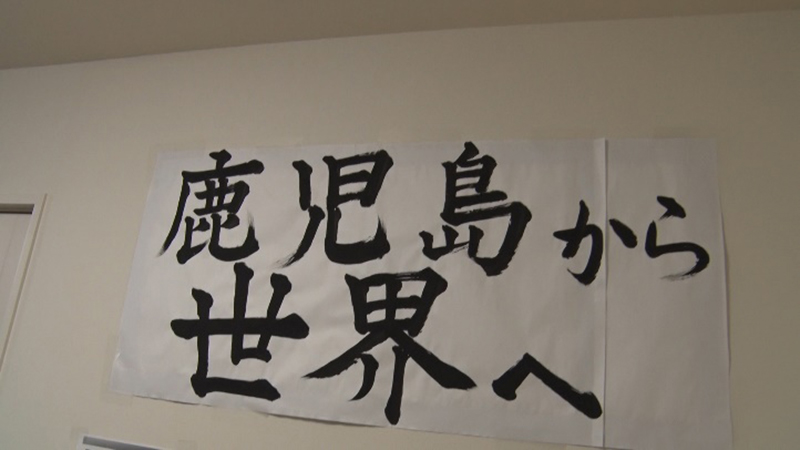 鹿児島から
世界へ